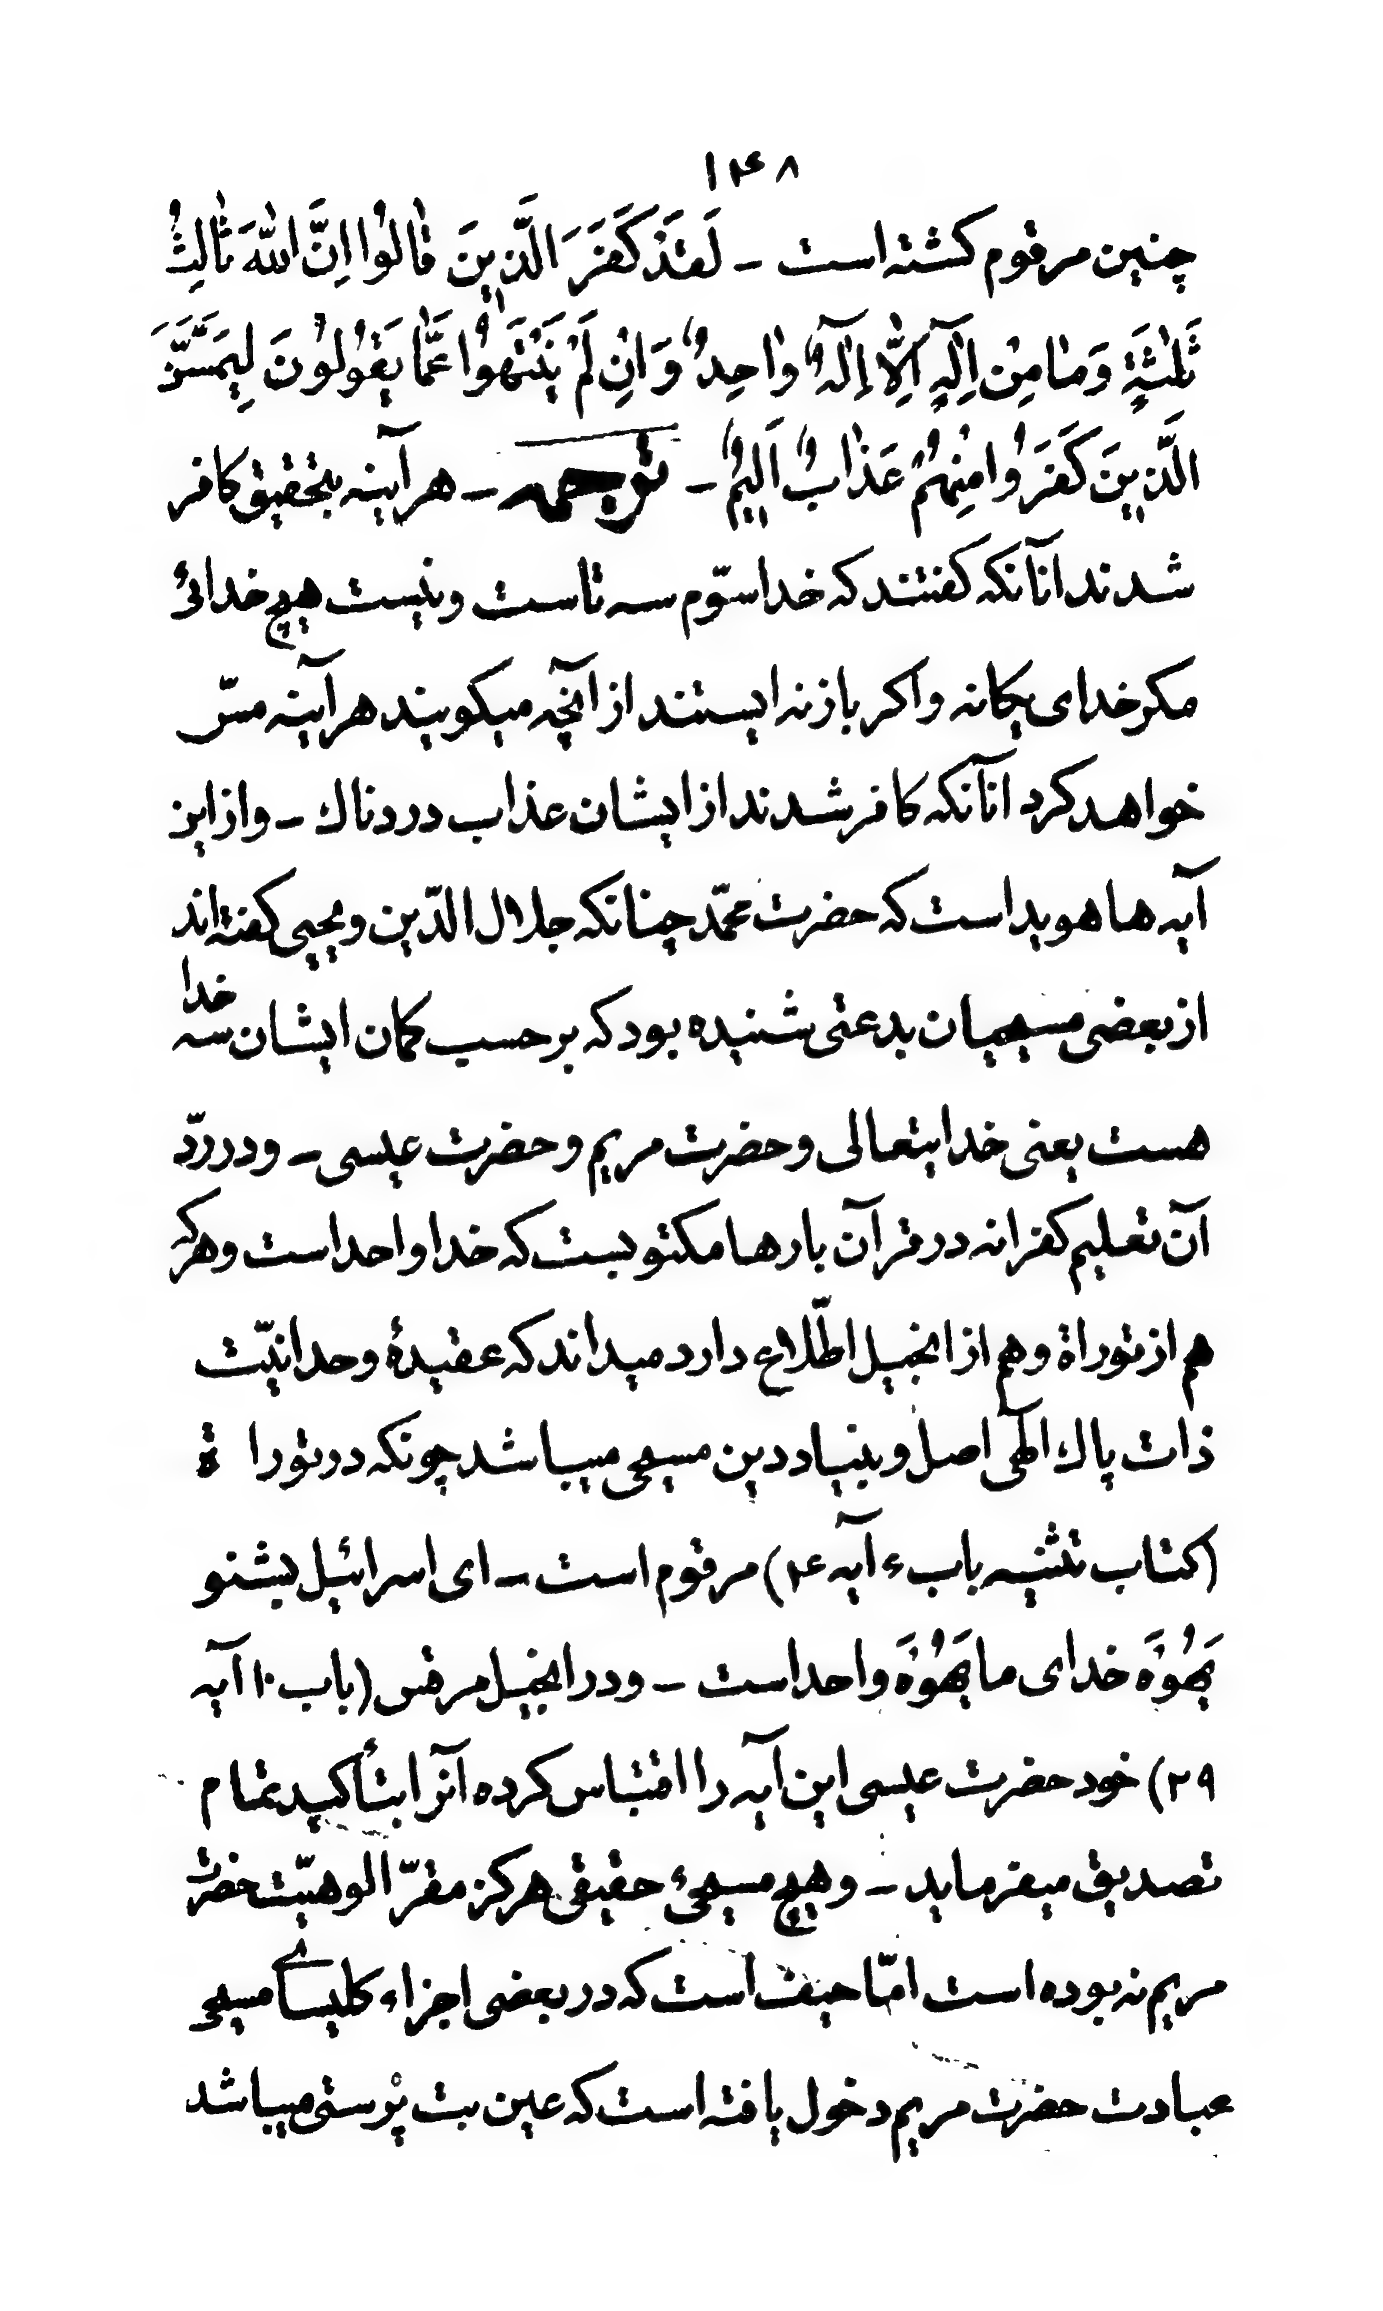 ۱۴۸
چنین مرقوم كشته است – لَقَدْ كَفَرَ الَّذِينَ قٰالُوا اِنَّ اللّٰهَ ثٰالِثُ
ثَلٰثَةٍ وَمٰا مِنْ اِلٰهٍ اِلّٰا اِلٰهٌ وٰاحِدٌ وَاِنْ لَمْ يَنْتَهَوُا عَمّٰا يَقُولُونَ لِيَمَسَّنَّ
الَّذِينَ كَفَرُوا مِنْهُمْ عَذٰابٌ اَلِيمٌ – ترجمه – هر آینه بتحقیق كافر
شدند انآنكه كفتند كه خدا سوّم سه تاست و نیست هیچ خدائی
مكر خدای یكانه و اكر باز نه ایستند از آنچه میكویند هر آینه مسّ
خواهد كرد انآنكه كافر شدند از ایشان عذاب دردناك – و از این
آیه ها هویداست كه حضرت محمّد چنانكه جلال الدّین و یحیی كفته اند
از بعضی مسیحیان بدعتی شنیده بود كه بر حسب كمان ایشان سه خدا
هست یعنی خدایتعالی و حضرت مریم و حضرت عیسی – و در ردّ
آن تعلیم كفرانه در قرآن بارها مكتوبست كه خدا واحد است و هر كه
هم از توراة و هم از انجیل اطّلاع دارد میداند كه عقیدهٔ وحدانیّت
ذات پاك الٓهی اصل و بنیاد دین مسیحی میباشد چونكه در تورا ة
(كتاب تثنیه باب ۶ آیه ۴) مرقوم است – ای اسرائیل بشنو
یَهُوَه خدای ما یَهُوَه واحد است – و در انجیل مرقس (باب ۱۲ آیه
۲۹) خود حضرت عیسی این آیه را اقتباس كرده آنرا بتأكید تمام
تصدیق میفرماید – و هیچ مسیحئ حقیقی هركز مقرّ الوهیّت حضرت
مریم نه بوده است امّا حیف است كه در بعضی اجزاء كلیسای مسیحی
عبادت حضرت مریم دخول یافته است كه عین بت پرستی میباشد